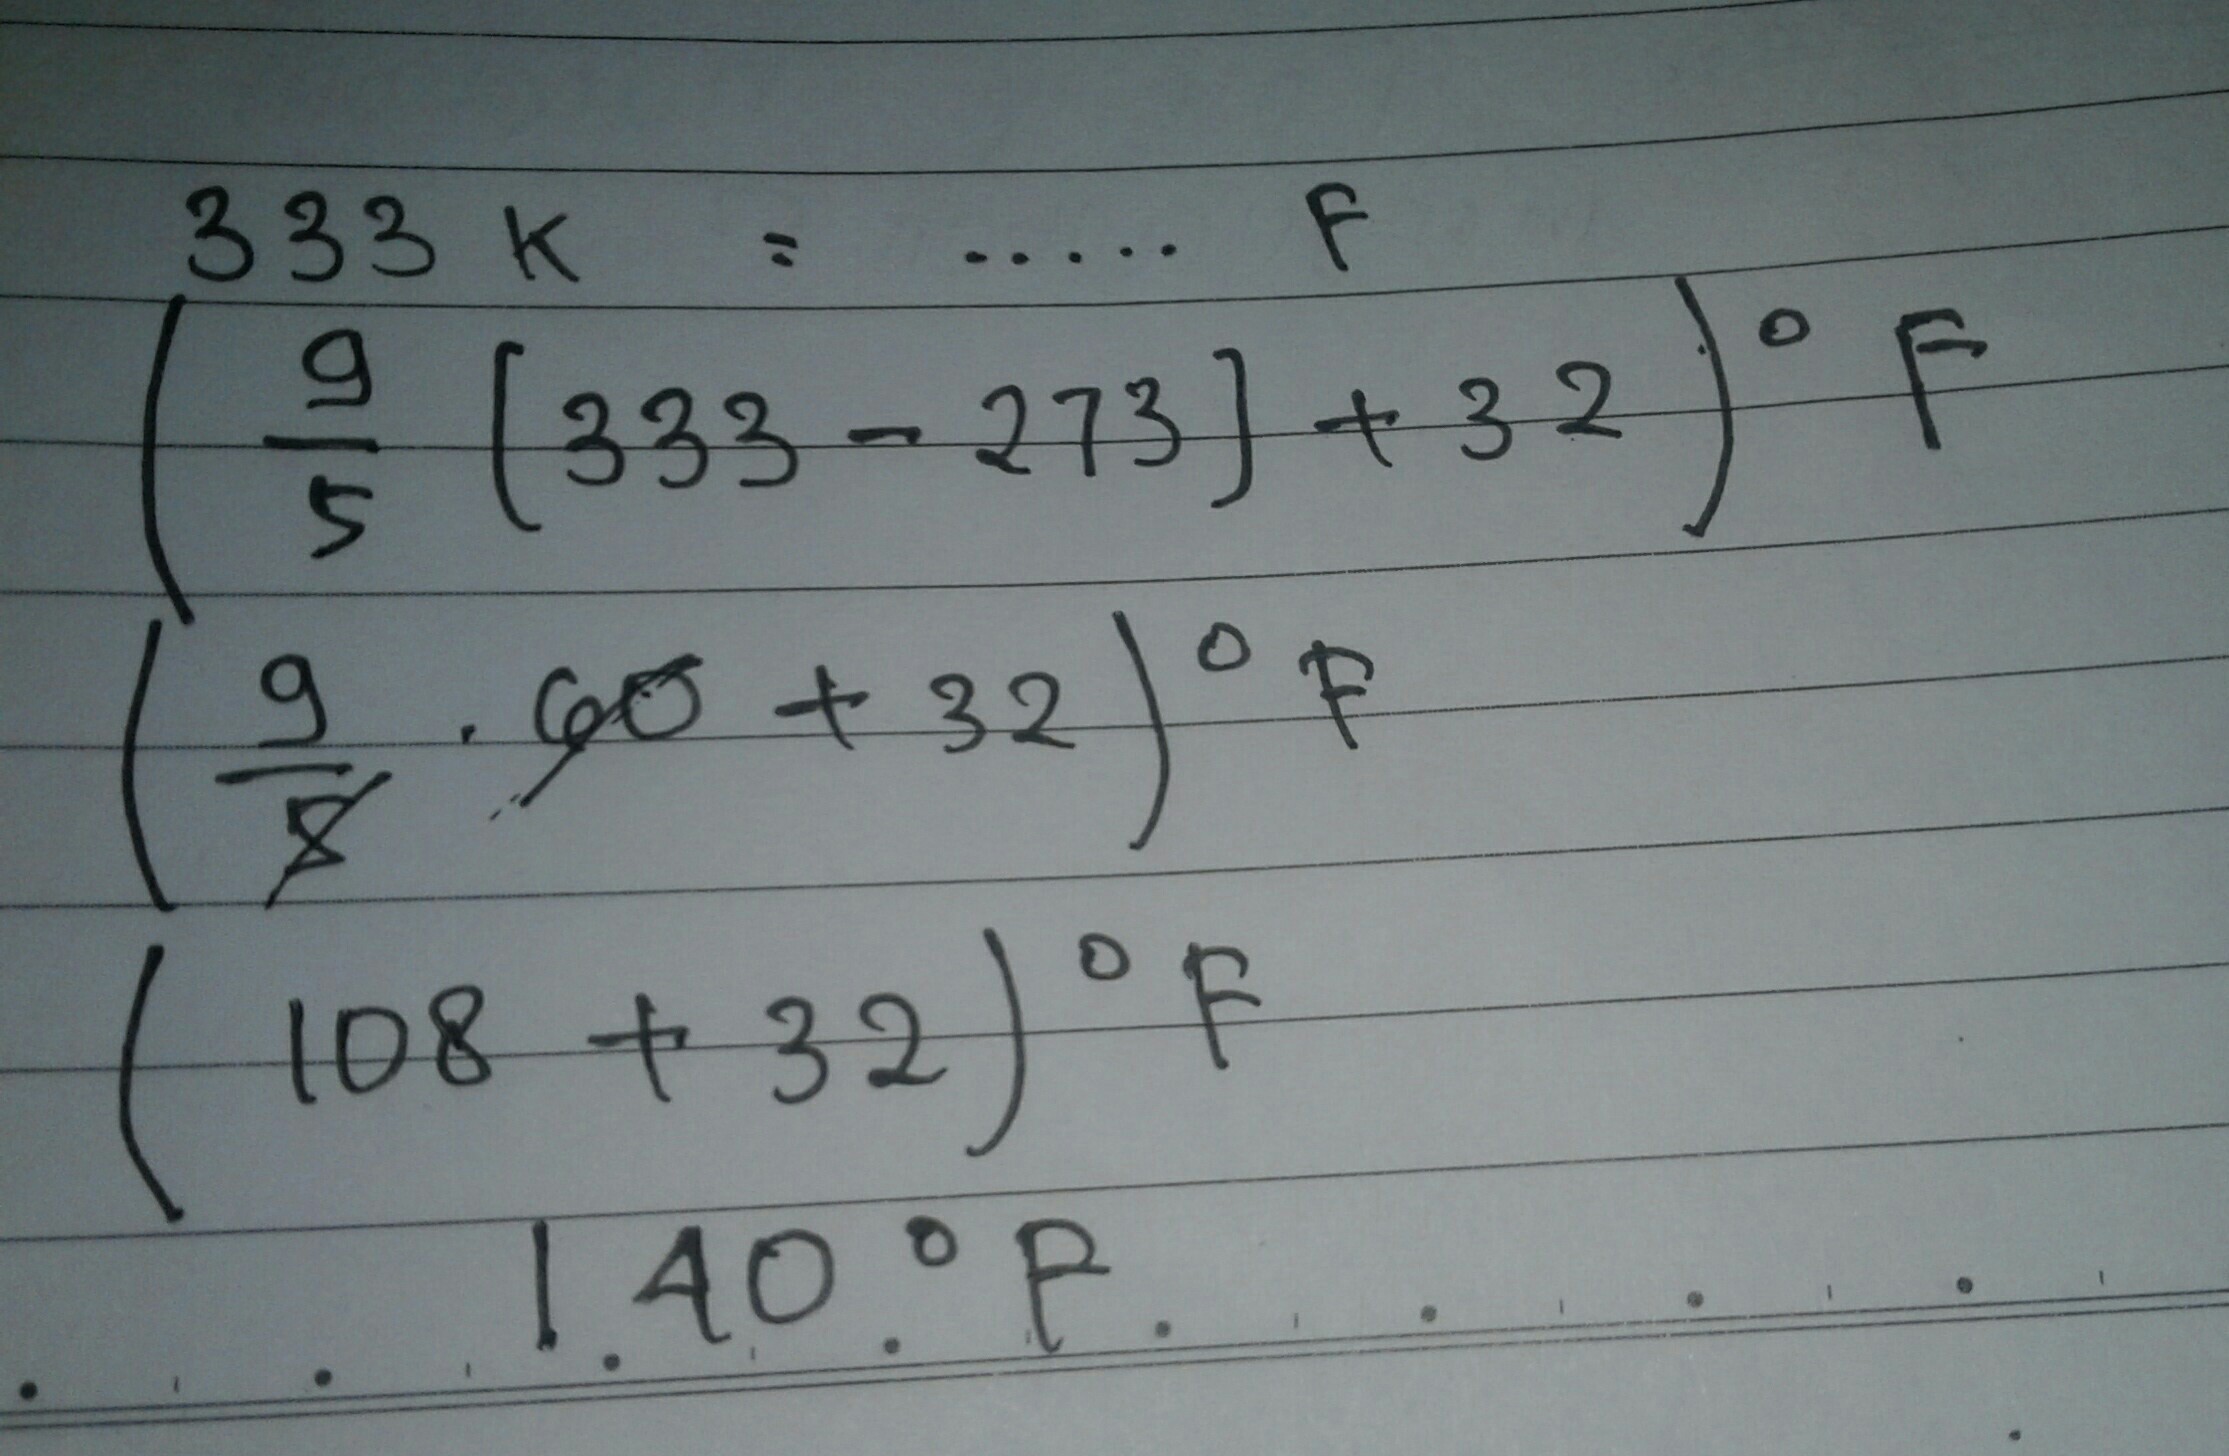 333 K = ..... F
( 9/5 [333 - 273] + 32 )° F
( 9/5 . 60 + 32 )° F
( 108 + 32 )° F
140° F